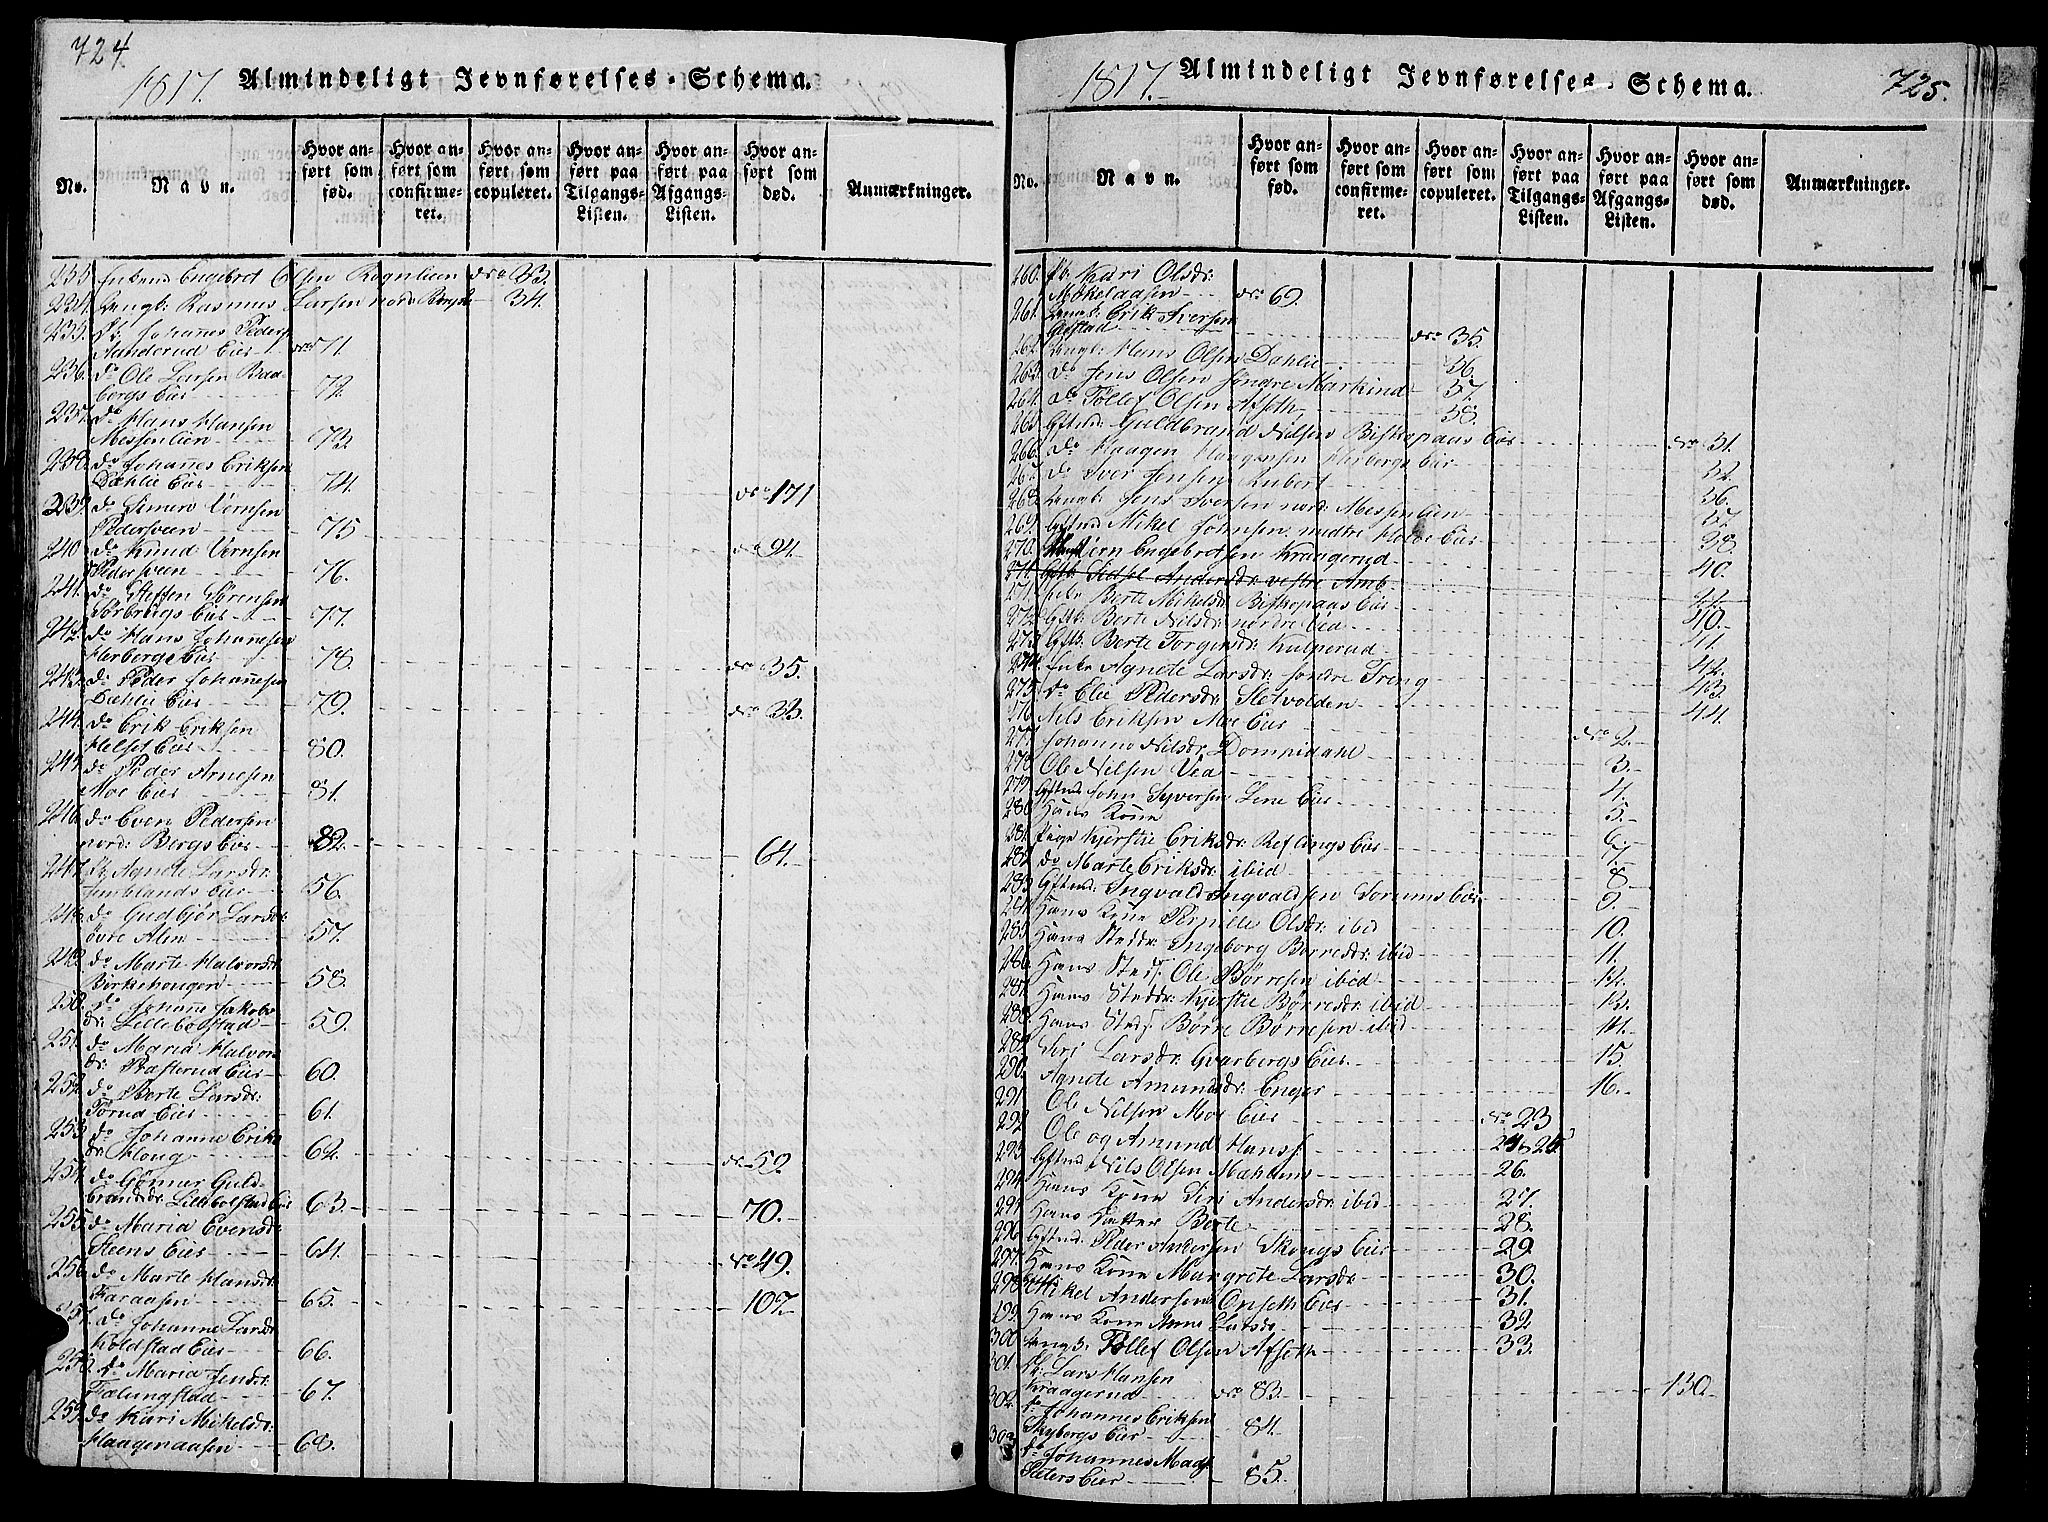 724.
1817. Almindeligt Jevnførelses-Schema.
No. Navn. Hvor anført som fød. Hvor anført som confirmeret. Hvor anført som copuleret. Hvor anført paa Tilgangs-Listen. Hvor anført paa Afgangs-Listen. Hvor anført som død. Anmærkninger.
Enkem Engebret Olsen Rognlien No 33.
234. Ungk: Rasmus Larsen nord: Berg 34.
235. Johannes Peders
Sanderud Eier 71.
236. do Ole Larsen Baa-
bergs Eier 72.
237. do Hans Hansen
Messenlien 73.
238. do Johannes Eriksen
Dæhlie Eier 74. No 171
239. do Simen Vernsen
Pedersveen 75
240 do Knud Vernsen No 94.
Pedersveen 76.
241. do Steffen Sørensen
Sørbergs Eier 77.
242. do Hans Johannesen
Herbergs Eier 78. No 35.
243. do Peder Johannesen
Dæhlie Eier 79. No 33.
244. do Erik Eriksen
Helset Eier 80.
245. do Peder Arnesen
Moe Eier 81.
246. do Even Pedersen
nord: Bergs Eier 82. 64.
247. Agnete Larsdr:
Eier 56.
248. do Gudbjør Larsdr:
øvre Alm 57.
249. do Marte Halvorsdr
Birkehaugen 58.
250. do Johanne Jakobs
dr: Lillebolstad 59.
251. do Maria Halvors
dr: Eier 60.
252. do Berte Larsdr:
Eier 61.
253. do Johanne Eriks
dr: Kloug 62. No 59.
254. do Gønner Guld-
brandsdr: Lillebolstad Eier 63. 70.
255. do Maria Evensdr
Steens Eier 64. No 49.
256. do Marte Hansdr:
Faraasen 65. 107.
257. do Johanne Larsdr
Koldstad Eier 66.
258. do Maria Jensdr:
Fælungstad 67.
259. do Kari Mikelsdr:
Haagenaasen 68.
725.
1817. Almindeligt Jevnførelses-Schema.
No. Navn. Hvor anført som fød. Hvor anført som confirmeret. Hvor anført som copuleret. Hvor anført paa Tilgangs-Listen. Hvor anført paa Afgangs-Listen. Hvor anført som død. Anmærkninger.
260. Kari Olsdr:
Mokelaasen No 69.
261. Ungk: Erik Iversen
Gifstad No 35.
262. Ungk: Hans Olsen Dahlie 36.
263. do Jens Olsen søndre Markind 37.
264. do Tollef Olsen Afseth 38.
265. Gftmd: Guldbrand Nilsen Biskopaas Eier No 31.
266. do Haagen Haagensen Herbergs Eier 32.
267. do Iver Jensen Rubert 36.
268. Ungk: Jens Iversen nord: Messenlien 37.
269. Gftmd: Mikel Johnsen nedre Eier 38.
270. Engebretsen Kraagerud 40.
271. Gftk: Sidsel Andersdr: vestre Amb
271. Enke Berte Mikelsdr: Biskopaas Eier
272. Gftk: Berte Nilsdr: nordre Vea 40.
273. Gftk: Berte Torgersdr: Kulperud 41.
274. Enke Agnete Larsdr: søndre Treng 42.
275. do Elie Pedersdr: Sletvolden 43.
276. Nils Eriksen Moe Eier 44.
277. Johanne Nilsdr: Dompidahl No 2.
278. Ole Nilsen Vea 3.
279. Gftmd: John Syversen Lene Eier 4.
280. Hans Kone 5.
281. Pige Kjerstie Eriksdr: Reflings Eier 6.
282. do Marte Eriksdr: ibid 7.
283. Gftmd: Ingvald Ingvaldsen Sorums Eier 8.
284. Hans Kone Pernille Olsdr: ibid 9.
285. Hans Steddr: Ingeborg Børresdr: ibid 10.
286. Hans Steds: Ole Børresen ibid 11.
287. Hans Steddr: Kjerstie Børresdr: ibid 12.
288. Hans Steds: Børre Børresen ibid 13.
289. Siri Larsdr: Gvarbergs Eier 14.
290. Agnete Amundsdr: Enger 15.
291. Ole Nilsen Moe Eier 16.
292. Ole og Amund Hans: No 23
293. Gftmd: Nils Olsen Mæhlums 24 25
294. Hans Kone Siri Andersdr: ibid 26.
295. Hans Datter Berte 27.
296. Gftmd: Peder Andersen Skougs Eier 28.
297. Hans Kone Margrete Larsdr: 29.
298. Mikel Andersen Onseth Eier 30.
299. Hans Kone Anne Larsdr 31.
300. Ungk: Tollef Olsen Afseth 32
33.
301. Lars Hansen
Kraagerud No 83. 130.
302. do Johannes Eriksen
Skybergs Eier 84.
303. do Johannes Mads
Sæters Eier 85.